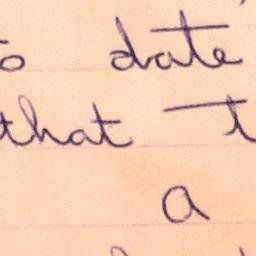 date
that
a